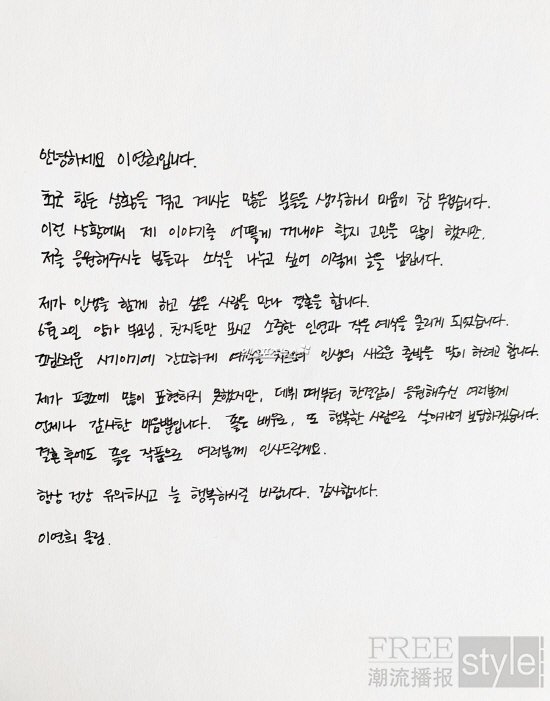 안녕하세요 이연희입니다.
최근 힘든 상황을 겪고 계시는 많은 분들을 생각하니 마음이 참 무겁습니다.
이런 상황에서 제 이야기를 어떻게 꺼내야 할지 고민을 많이 했지만,
저를 응원해주시는 분들과 소식을 나누고 싶어 이렇게 글을 남깁니다.
제가 인생을 함께 하고 싶은 사람을 만나 결혼을 합니다.
6월 2일 양가 부모님, 친지들만 모시고 소중한 인연과 작은 예식을 올리게 되었습니다.
조심스러운 시기이기에 간소하게 예식을 치르며 인생의 새로운 출발을 맞이하려고 합니다.
제가 평소에 많이 표현하지 못했지만, 데뷔 때부터 한결같이 응원해주신 여러분께
언제나 감사한 마음뿐입니다. 좋은 배우로, 또 행복한 사람으로 살아가며 보답하겠습니다.
결혼 후에도 좋은 작품으로 여러분께 인사드릴게요.
항상 건강 유의하시고 늘 행복하시길 바랍니다. 감사합니다.
이연희 올림.
FREE style!
潮流播报